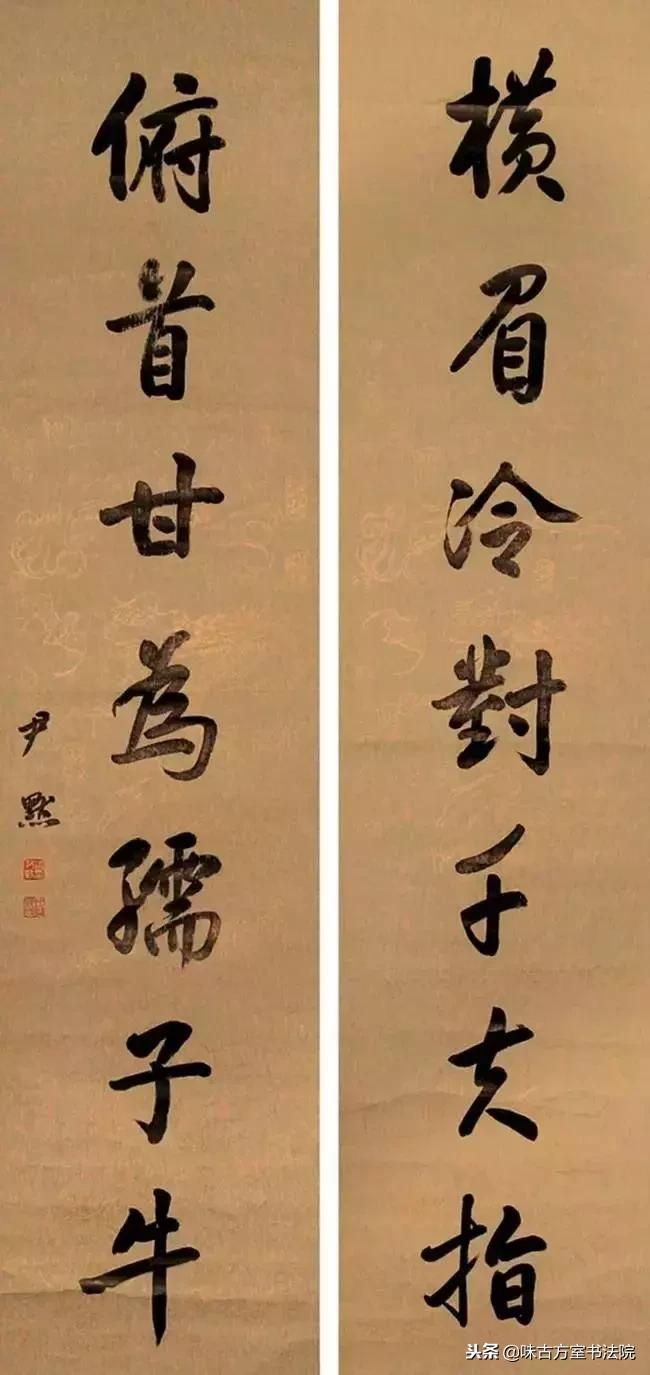 橫眉冷對千夫指
俯首甘為孺子牛
尹默
头条@味古方室书法院